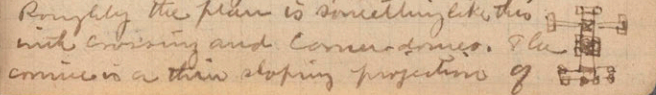 Roughly the plan is something like this
with crossing and corner domes. The
cornice is a thin sloping projection of